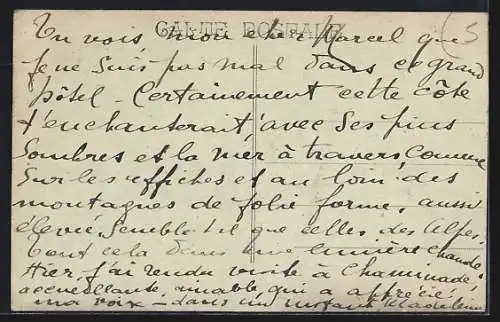 CARTE POSTALE
5
Tu vois mon cher Marcel que
je ne suis pas mal dans ce grand
hôtel - Certainement cette côte
t'enchanterait avec ses pins
sombres et la mer à travers, comme
sur les affiches et au loin des
montagnes de jolie forme, aussi
élevée, semble-t-il que celles des Alpes.
Tout cela dans une lumière chaude.
Hier, j'ai rendu visite à Chaminade,
accueillante, aimable qui a apprécié
ma voix - dans un instant Madeleine